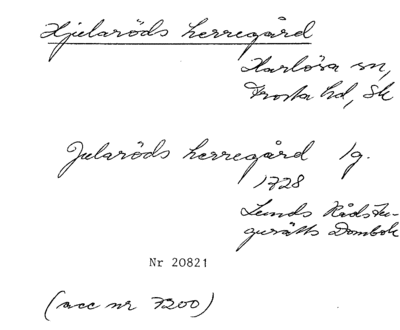 Hjelaröds herregård
Harlösa sn,
Frosta hd, Sk
Jularöds herregård 1g.
1728
Lunds Rådstu-
gurätts Dombok
Nr 20821
(acc nr 7200)